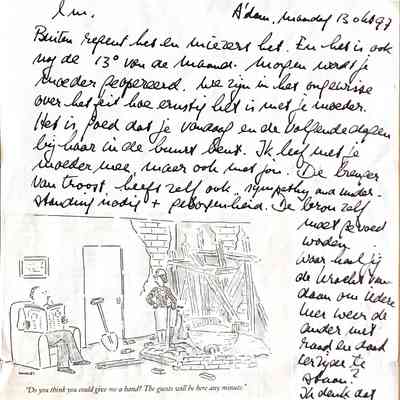 Lm.
A'dam, maandag 13 okt 97
Buiten regent het en miezert het. En het is ook
nog de 13e van de maand. Morgen wordt je
moeder geopereerd. We zijn in het ongewisse
over het feit hoe ernstig het is met je moeder.
Het is goed dat je vandaag en de volgende dagen
bij haar in de buurt bent. Ik leef met je
moeder mee, maar ook met jou. De brenger
van troost, heeft zelf ook sympathy and under-
standing nodig + geborgenheid. De bron zelf
moet gevoed
worden.
Waar haal jij
de kracht van
daan om iedere
keer weer de
ander met
raad en daad
terzijde te
staan?
Ik denk dat
"Do you think you could give me a hand? The guests will be here any minute."